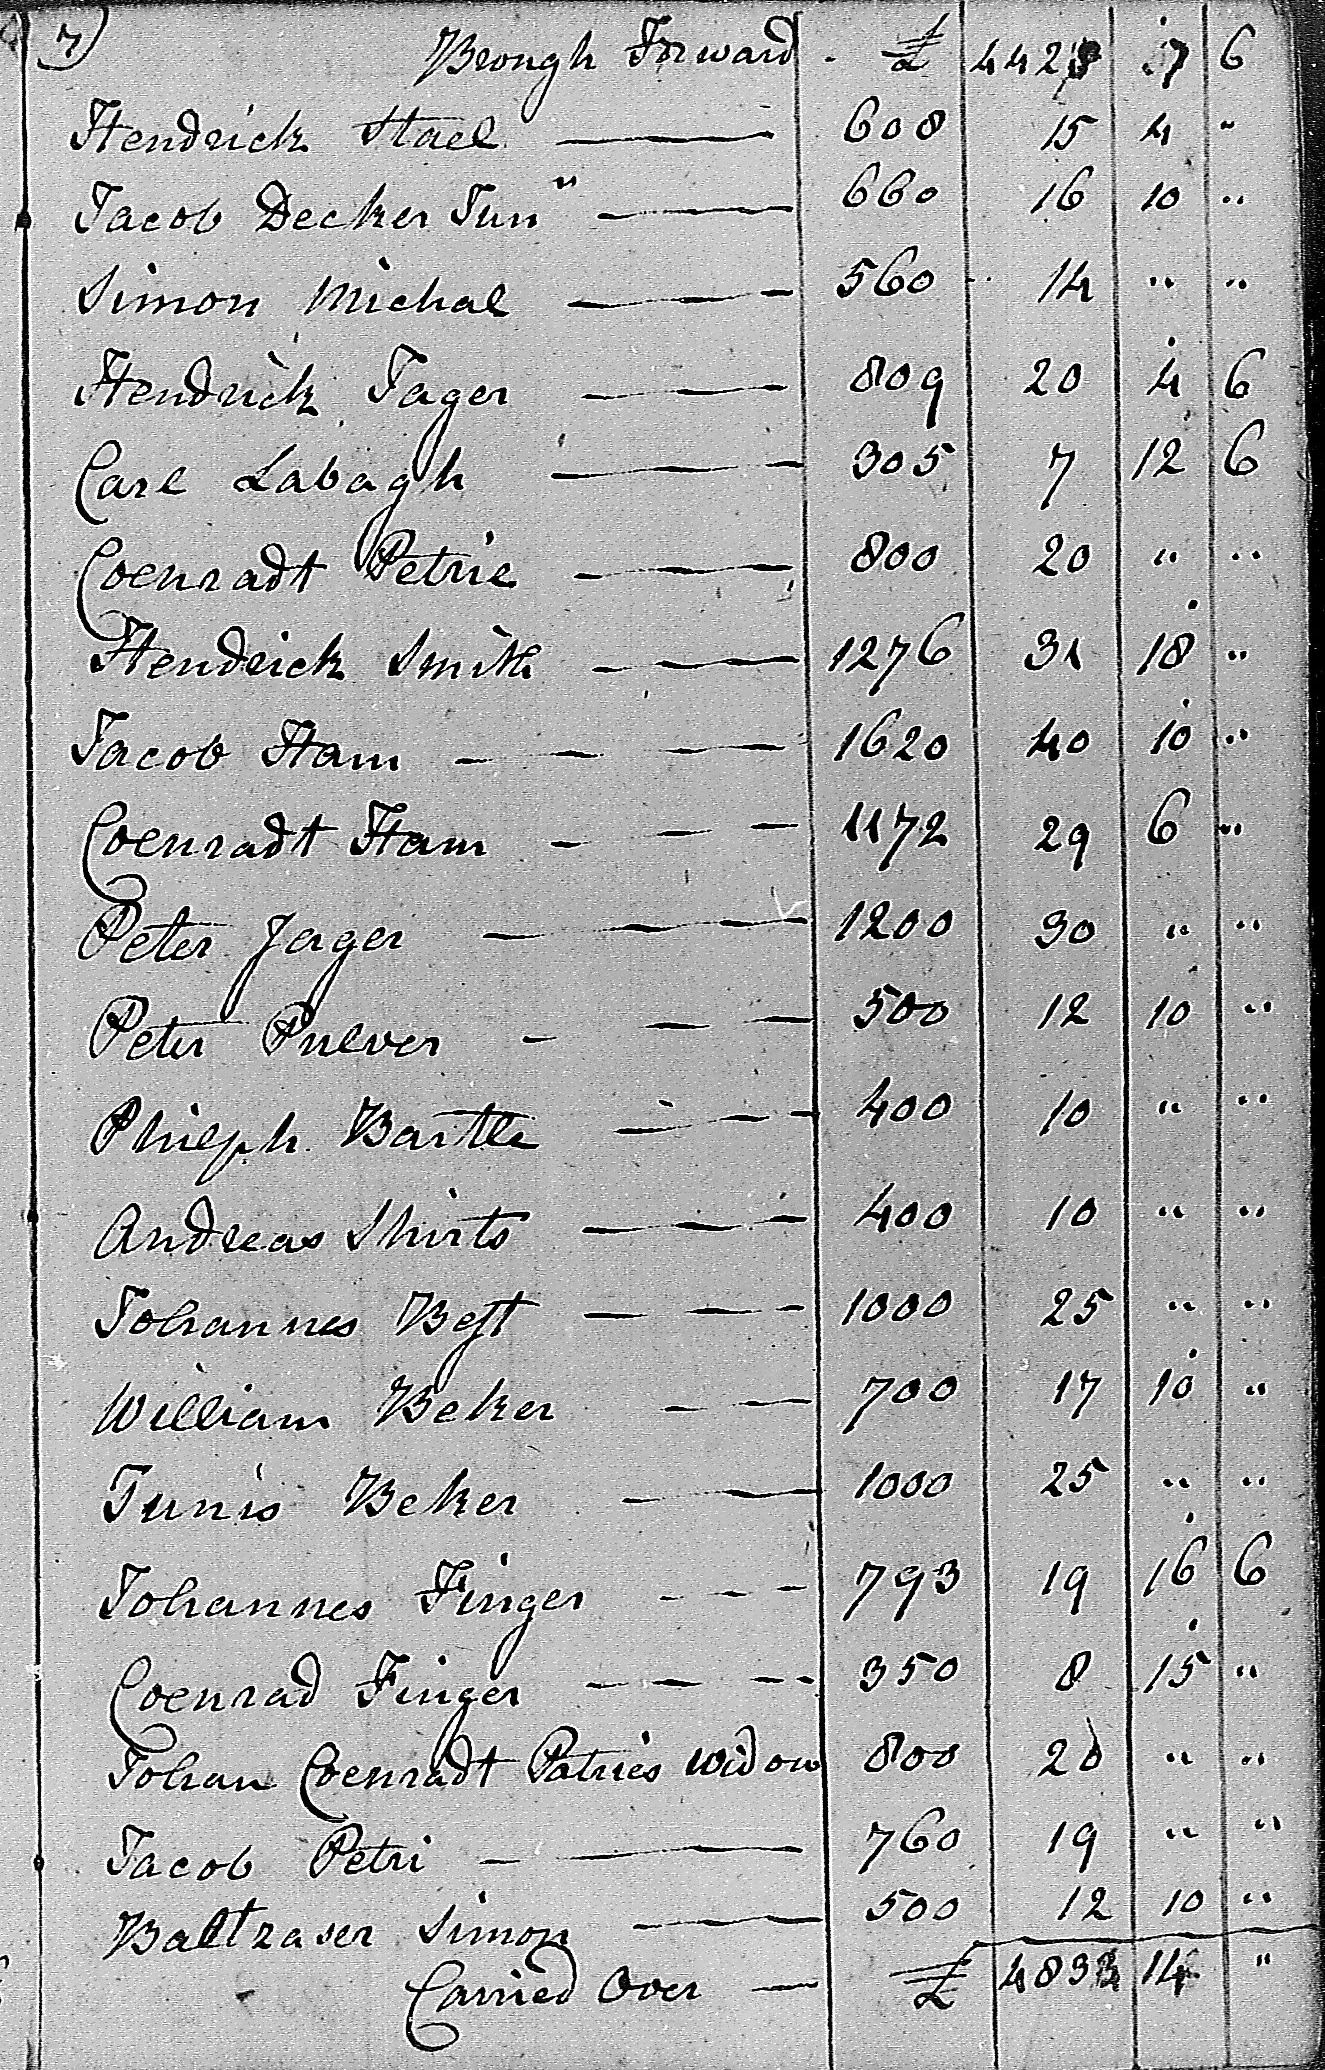 7)
Brough Forward . £ 7 6
Hendrick Stael — 608 15 4 "
Jacob Decker Junr — 660 16 10 "
Simon Michal — 560 14 " "
Hendrick Jager — 809 20 4 6
Carl Labagh — 305 7 12 6
Coenradt Petrie — 800 20 " "
Hendrick Smith — 1276 31 18 "
Jacob Ham — 1620 40 10 "
Coenradt Ham — 1172 29 6 "
Peter Jager — 1200 30 " "
Peter Pulver — 500 12 10 "
Philiph Bartle — 400 10 " "
Andreas Shirts — 400 10 " "
Johannes Best — 1000 25 " "
William Beker — 700 17 10 "
Tunis Beker — 1000 25 " "
Johannes Finger — 793 19 16 6
Coenrad Finger — 350 8 15 "
Johan Coenradt Patries Widow 800 20 " "
Jacob Petri — 760 19 " "
Baltzaser Simon — 500 12 10 "
Carried Over — £ 14 "